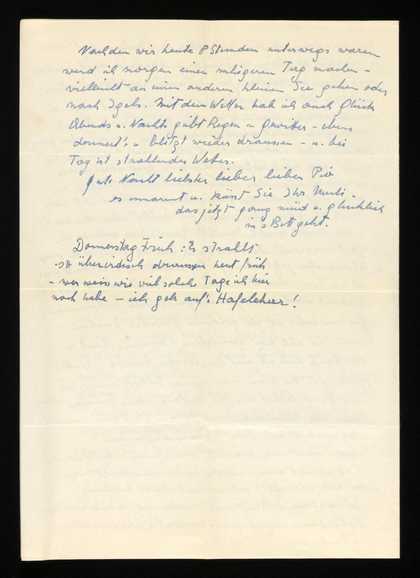 Nachdem wir heute 8 Stunden unterwegs waren
werd ich morgen einen ruhigeren Tag machen –
vielleicht an einen anderen kleinen See gehen oder
nach Igels. Mit dem Wetter hab ich auch Glück
Abends u. Nachts gibt Regen u. Gewitter – eben
donnert's u. blitzt wieder draussen – u. bei
Tag ist strahlendes Wetter.
Gute Nacht liebster lieber lieber Pio
es umarmt u. küsst Sie Ihr
das jetzt ganz müd u. glücklich
in's Bett geht.
Donnerstag Früh: Es strahlt
ist überirdisch draussen heut früh
– wer weiss wie viel solche Tage ich hier
noch habe – ich geh auf's Hafelekar!